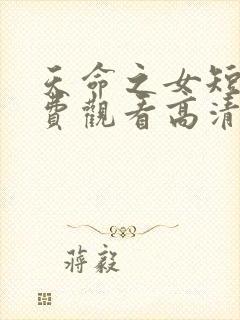 天命之女短
費觀看高清
蔣毅